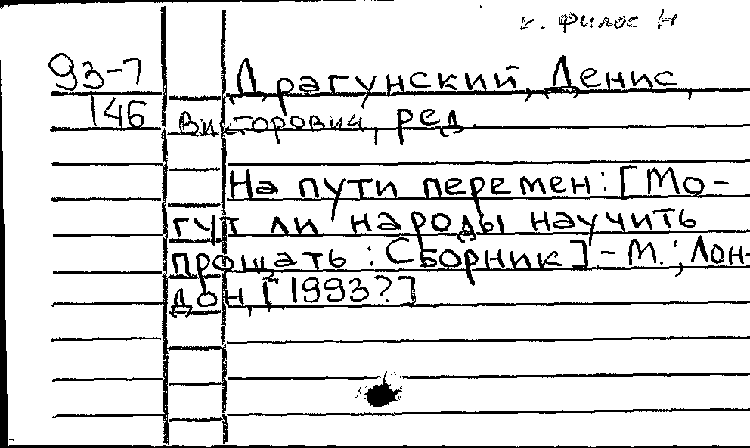 к. Филос Н
93-7 Драгунский, Денис
146 Викторович, ред.
На пути перемен: [Мо-
гут ли народы научить
прощать : Сборник] - М.; Лон-
дон, [1993?]